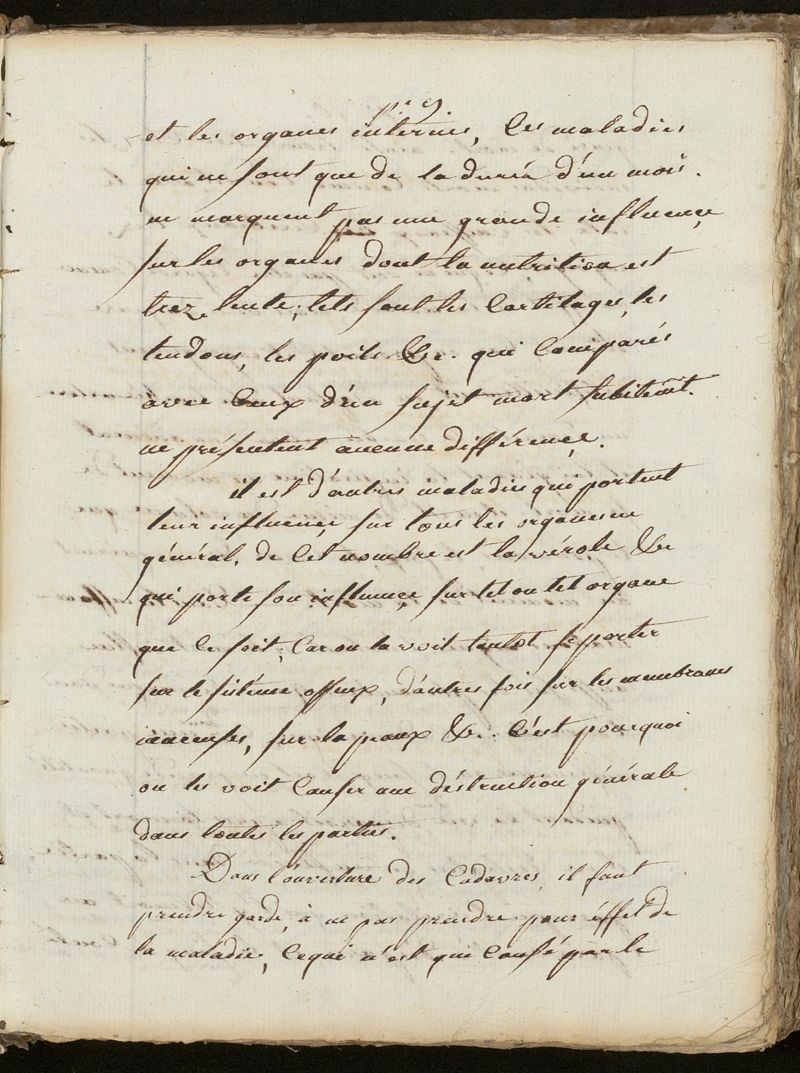 pe 9.
et les organes internes, les maladies
qui ne sont que de la durée d'un mois.
ne marquent pas une grande influençe
sur les organes dont la nutrition est
trez lente, tels sont les Cartilages, les
tendons, les poils &c. qui Comparés
avec Ceux d'un sujet mort subitemt.
ne présentent aucune différençe.
il est d'autres maladies qui portent
leur influençe sur tous les organes en
général. de Cet nombre est la vérole &c
qui porte son influençe sur tel ou tel organe
que Ce soit, Car on la voit tentot se porter
sur le sistéme osseux, d'autres fois sur les membranes
muceuses, sur la peaux &c. C'est pourquoi
on les voit Causer une déstruction générale
dans toutes les parties.
Dans l'ouverture des Cadavres, il faut
prendre garde, à ne pas prendre pour éffet de
la maladie, Cequi n'est que Causé par le